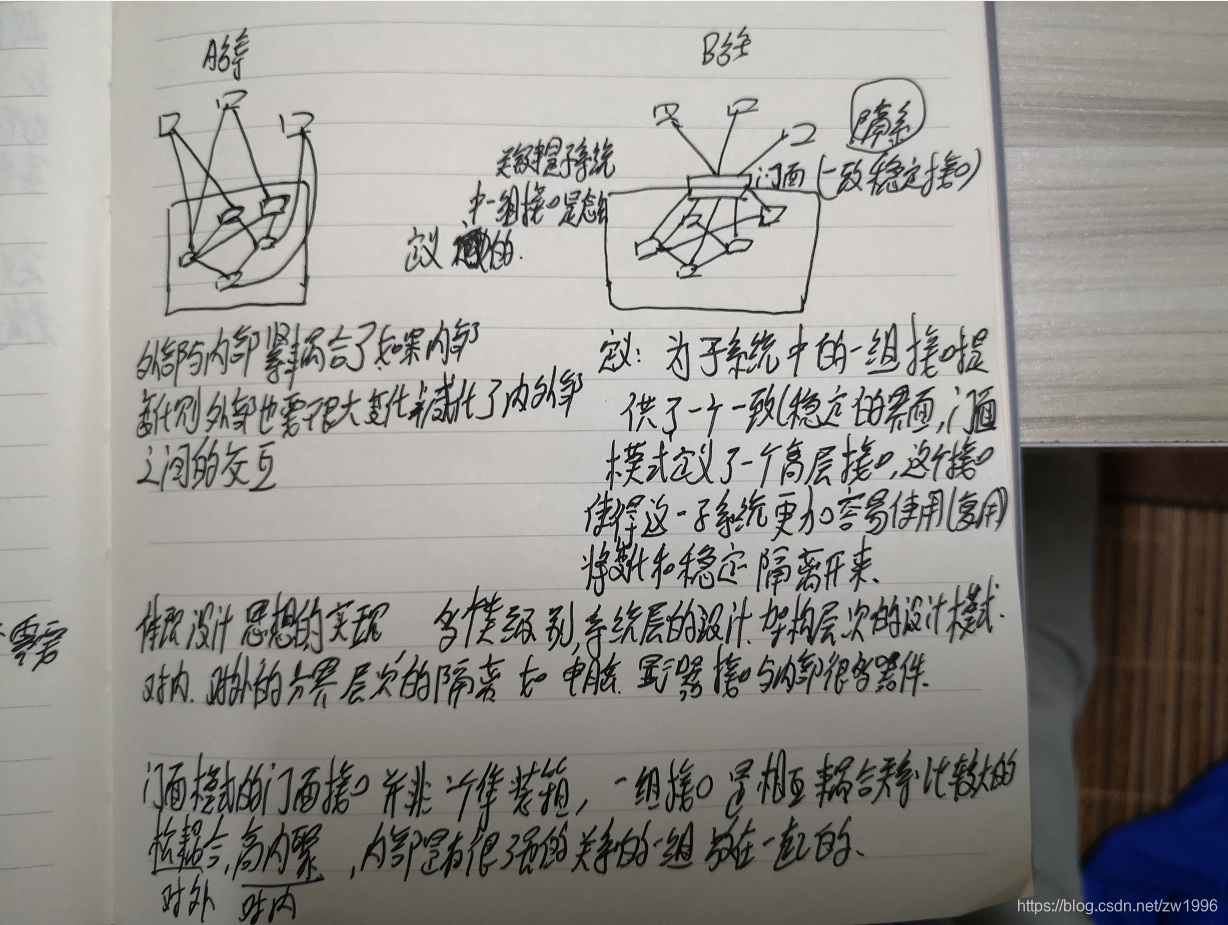 A
B
隔离
门面 (一致稳定接口)
关键是子系统
中一组接口是
定义 的.
外部与内部紧耦合了如果内部
变化则外部也需要很大变化 减化了内外部
之间的交互
定义: 为子系统中的一组接口提
供了一个一致(稳定)的界面,门面
模式定义了一个高层接口,这个接口
使得这一子系统更加容易使用(复用)
将变化和稳定隔离开来.
体现设计思想的实现 级别,系统层的设计.架构层次的设计模式.
对内.对外的分界层次的隔离 如 电脑.显示器接口与内部很多器件.
门面模式的门面接口并非一个集装箱, 一组接口是相互耦合关系比较大的
松耦合,高内聚 ,内部是有很强的关系的一组放在一起的.
对外 对内
https://blog.csdn.net/zw1996